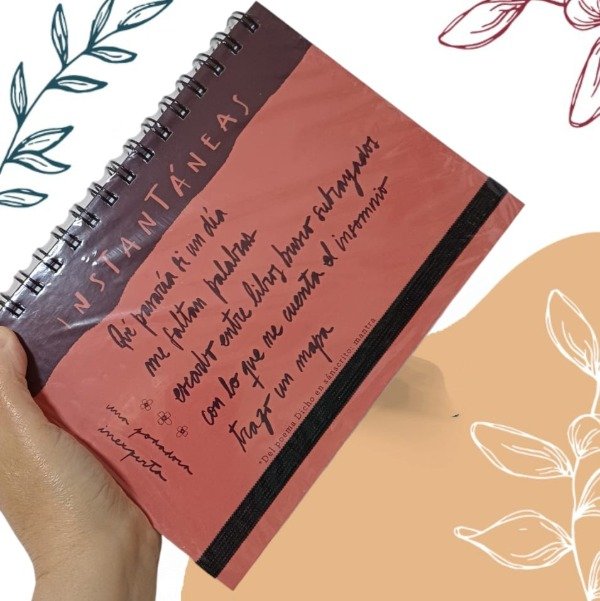 INSTANTÁNEAS
Qué pasaría si un día
me faltan palabras
escarbo entre libros busco subrayados
con lo que me cuenta el insomnio
trazo un mapa
*Del poema Dicho en sánscrito, mantra
una podadora
inexperta